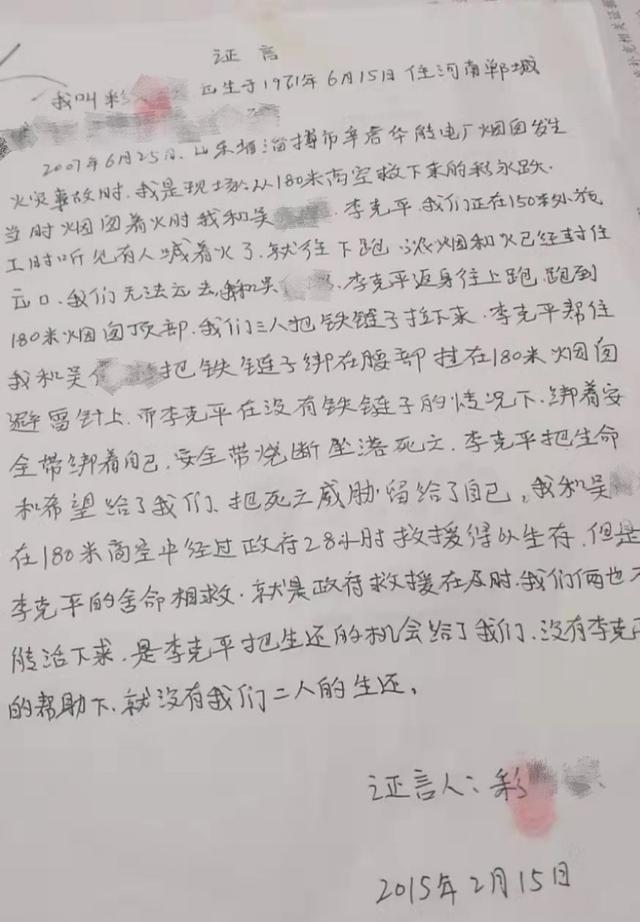 证言
我叫彩 出生于1971年6月15日住河南郸城
2007年6月25日.山东省淄博市 华能电厂烟囱发生
火灾事故时.我是现场.从180米高空救下来的彩永跃.
当时烟囱着火时我和吴 李克平.我们正在150米外施
工时听见有人喊着火了.就往下跑.浓烟和火已经封住
出口.我们无法出去.我和吴 .李克平返身往上跑.跑到
180米烟囱顶部.我们三人把铁链子拉下来.李克平帮住
我和吴 把铁链子绑在腰部挂在180米烟囱
避雷针上.而李克平在没有铁链子的情况下.绑着安
全带绑着自己.安全带烧断坠落死亡.李克平把生命
和希望给了我们.把死亡威胁留给了自己,我和吴
在180米高空中经过政府28小时救援得以生存.但是
李克平的舍命相救.就是政府救援在及时.我们俩也不
能活下来.是李克平把生还的机会给了我们.没有李克平
的帮助下.就没有我们二人的生还。
证言人:彩
2015年2月15日